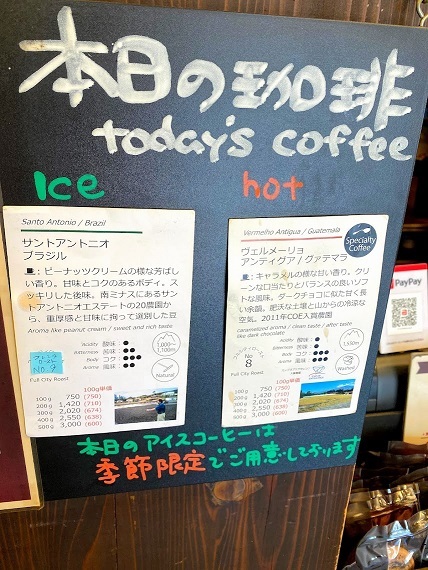 本日の珈琲
today's coffee
Ice
hot
Santo Antonio / Brazil
サントアントニオ
ブラジル
豆:ピーナッツクリームの様な芳ばし
い香り。甘味とコクのあるボディ。ス
ッキリした後味。南ミナスにあるサン
トアントニオエステートの20農園か
ら、重厚感と甘味に拘って選別した豆
Aroma like peanut cream / sweet and rich taste
Acidity 酸味
Bitterness 苦味
Body コク
Aroma 風味
1,000〜
1,100m
Natural
No.9
Full City Roast
100g単価
100g 750 (750)
200g 1,420 (710)
300g 2,020 (674)
400g 2,550 (638)
500g 3,000 (600)
Vermelho Antigua / Guatemala
Specialty
Coffee
ヴェルメーリョ
アンティグア / グァテマラ
豆:キャラメルの様な甘い香り。クリ
ーンな口当たりとバランスの良いソフ
トな風味。ダークチョコに似た甘く長
い余韻。肥沃な土壌と山からの冷涼な
空気。2011年COE入賞農園
caramelized aroma / clean taste / after taste
like dark chocolate
Acidity 酸味
Bitterness 苦味
Body コク
Aroma 風味
1,550m
Washed
No.
8
Full City Roast
100g単価
100g 750 (750)
200g 1,420 (710)
300g 2,020 (674)
400g 2,550 (638)
500g 3,000 (600)
本日のアイスコーヒーは
季節限定でご用意しております
PayPay